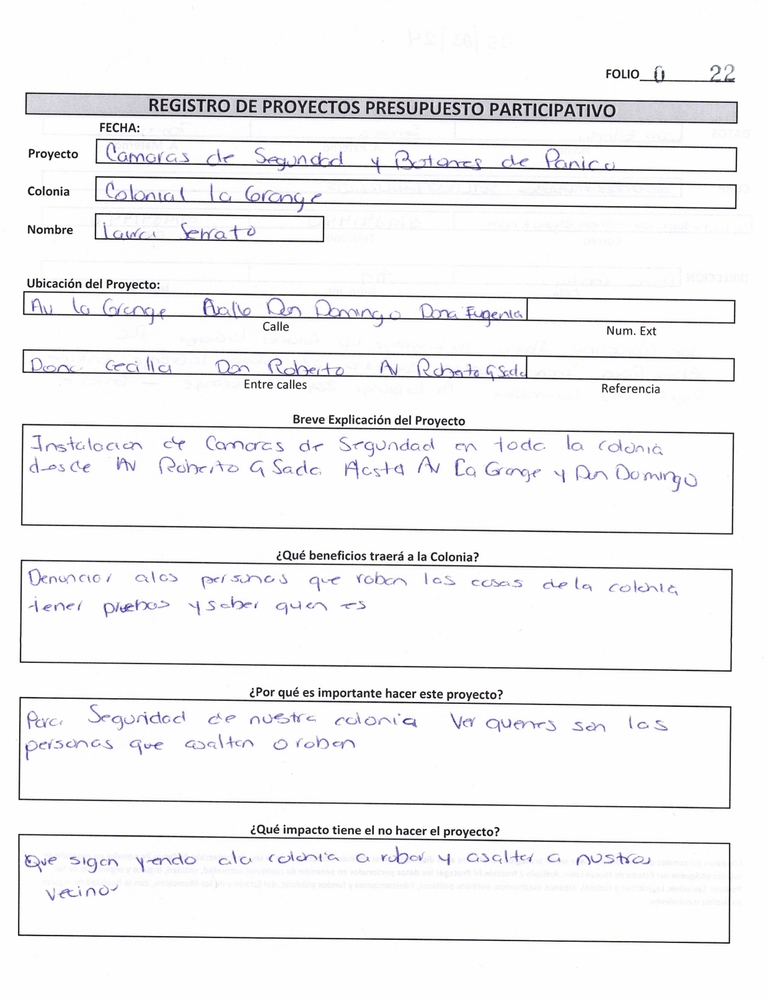 FOLIO 0 22
REGISTRO DE PROYECTOS PRESUPUESTO PARTICIPATIVO
FECHA:
Proyecto Camaras de Seguridad y Botones de Panico
Colonia Colonial la Grange
Nombre Laura Serrato
Ubicación del Proyecto:
Av la Grange Don Domingo Dona Eugenia
Calle Num. Ext
Dona Cecilia Don Roberto AV Roberto G Sada
Entre calles Referencia
Breve Explicación del Proyecto
Instalacion de Camaras de Seguridad en toda la colonia
desde AV Roberto G Sada Hasta Av La Grange y Don Domingo
¿Qué beneficios traerá a la Colonia?
Denunciar alas personas que roban las cosas de la colonia
tener pruebas y saber quien es
¿Por qué es importante hacer este proyecto?
Para Seguridad de nuestra colonia Ver quienes son las
personas que asaltan o roban
¿Qué impacto tiene el no hacer el proyecto?
Que sigan yendo ala colonia a robar y asaltar a nustros
vecinos